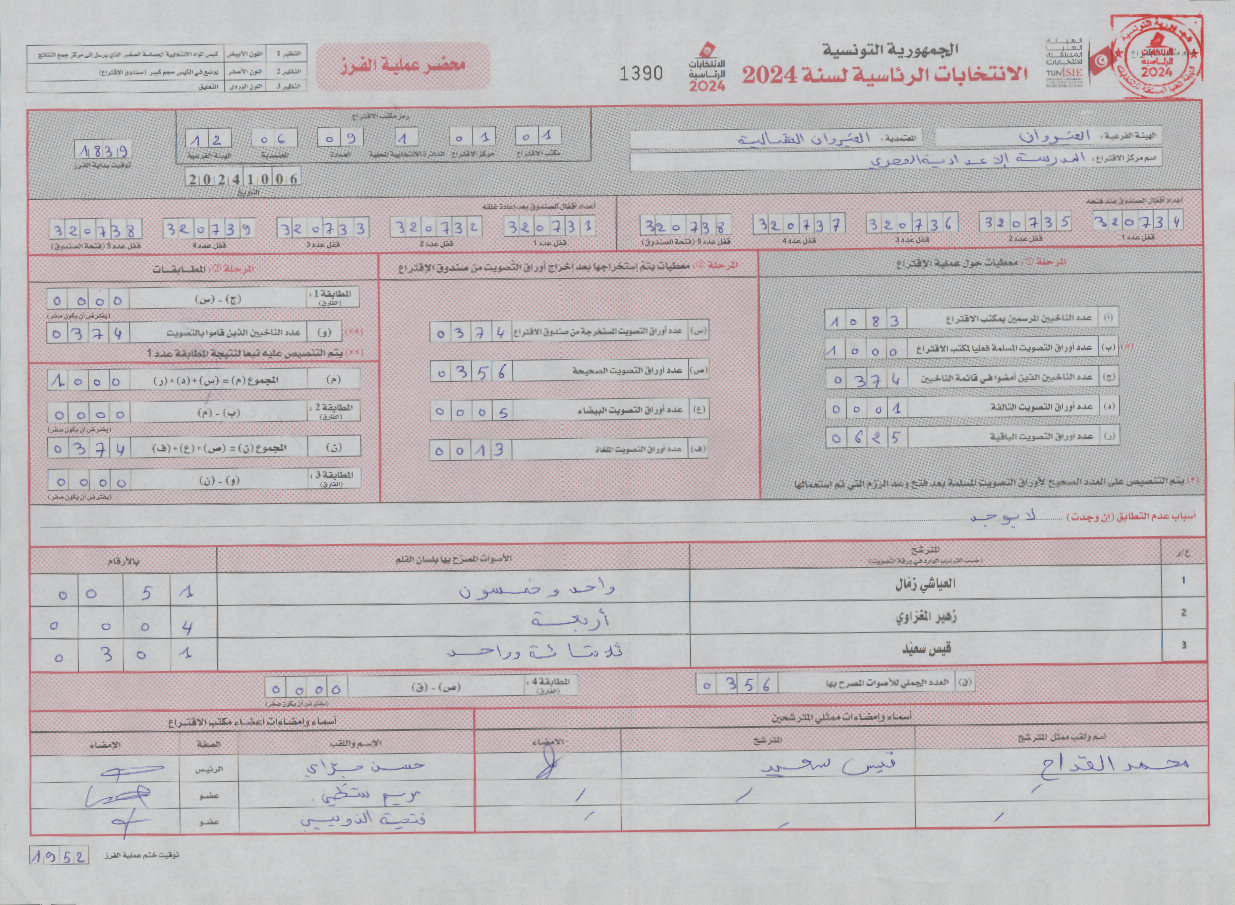 الجمهورية التونسية
الانتخابات الرئاسية لسنة 2024
الهيئة العليا المستقلة للانتخابات
TUNISIE
الانتخابات الرئاسية 2024
1390
محضر عملية الفرز
النظير 1 اللون الأبيض كيس المواد الانتخابية الحساسة الصغير الذي يرسل الى مركز جمع النتائج
النظير 2 اللون الأصفر يوضع في الكيس حجم كبير (صندوق الاقتراع)
النظير 3 اللون الوردي التعليق
الهيئة الفرعية: القيروان المعتمدية: القيروان الشمالية
اسم مركز الإقتراع: المدرسة الإعدادية
رمز مكتب الاقتراع
01 01 1 09 06 12
مكتب الاقتراع مركز الاقتراع الدائرة الانتخابية المحلية العمادة المعتمدية الهيئة الفرعية
20241006
التاريخ
1839
توقيت بداية الفرز
أعداد أقفال الصندوق عند فتحه
320734 320735 320736 320737 320738
قفل عدد 1 قفل عدد 2 قفل عدد 3 قفل عدد 4 قفل عدد 5 (فتحة الصندوق)
أعداد أقفال الصندوق بعد إعادة غلقه
320731 320732 320733 320739 320738
قفل عدد 1 قفل عدد 2 قفل عدد 3 قفل عدد 4 قفل عدد 5 (فتحة الصندوق)
المرحلة ①: معطيات حول عملية الإقتراع
(أ) عدد الناخبين المرسمين بمكتب الاقتراع 1083
(*) (ب) عدد أوراق التصويت المسلمة فعليا لمكتب الاقتراع 1000
(ج) عدد الناخبين الذين أمضوا في قائمة الناخبين 0374
(د) عدد أوراق التصويت التالفة 0001
(ر) عدد أوراق التصويت الباقية 0625
(*) يتم التنصيص على العدد الصحيح لأوراق التصويت المسلمة بعد فتح وعد الرزم التي تم استعمالها
المرحلة ②: معطيات يتم إستخراجها بعد إخراج أوراق التصويت من صندوق الإقتراع
(س) عدد أوراق التصويت المستخرجة من صندوق الاقتراع 0374
(ص) عدد أوراق التصويت الصحيحة 0356
(ع) عدد أوراق التصويت البيضاء 0005
(ف) عدد أوراق التصويت الملغاة 0013
المرحلة ③: المطابقات
المطابقة 1: (الفارق) (ج) - (س) 0000
(يفترض أن يكون صفر)
(**) (و) عدد الناخبين الذين قاموا بالتصويت 0374
(**) يتم التنصيص عليه تبعا لنتيجة المطابقة عدد 1
(م) المجموع (م) = (س)+(د)+(ر) 1000
المطابقة 2: (الفارق) (ب) - (م) 0000
(يفترض أن يكون صفر)
(ن) المجموع (ن) = (ص)+(ع)+(ف) 0374
المطابقة 3: (الفارق) (و) - (ن) 0000
(يفترض أن يكون صفر)
اسباب عدم التطابق (إن وجدت) لا يوجد
ع/د المترشح الأصوات المصرح بها بلسان القلم بالأرقام
(حسب الترتيب الوارد في ورقة التصويت)
1 العياشي زمّال واحد وخمسون 0051
2 زهير المغزاوي أربعة 0004
3 قيس سعيّد ثلاثمائة وواحد 0301
(ق) العدد الجملي للأصوات المصرح بها 0356
المطابقة 4: (الفارق) (ص) - (ق) 0000
(يفترض أن يكون صفر)
أسماء وإمضاءات ممثلي المترشحين
اسم ولقب ممثل المترشح المترشح الامضاء
محمد القداح قيس سعيد
أسماء وإمضاءات أعضاء مكتب الاقتراع
الإسم واللقب الصفة الإمضاء
حسن الرئيس
مريم عضو
فتحية عضو
1952 توقيت ختم عملية الفرز